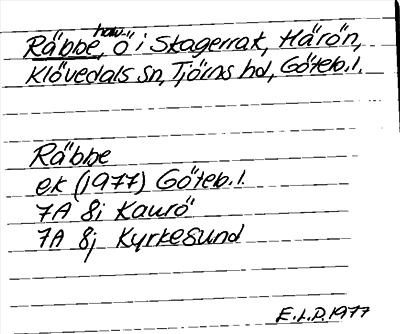 Räbbe, hav. ö i Skagerrak, Härön,
Klövedals sn, Tjörns hd, Göteb. l.
Räbbe
ek (1977) Göteb. l.
7A 8i Kaurö
7A 8j Kyrkesund
E.L.D. 1977